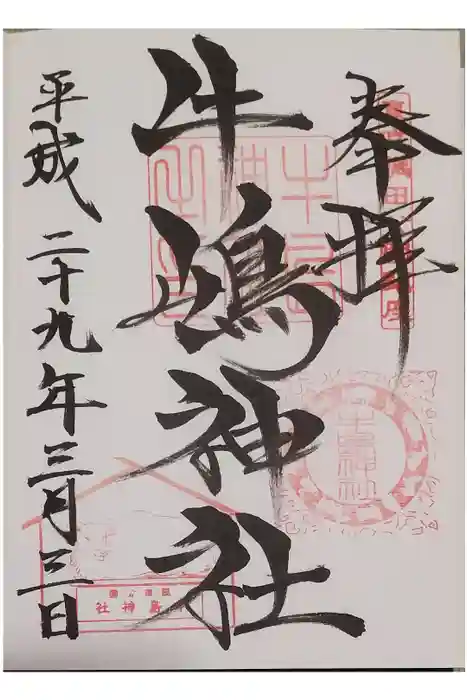 奉拝
牛嶋神社
平成二十九年三月三日
牛嶋神社